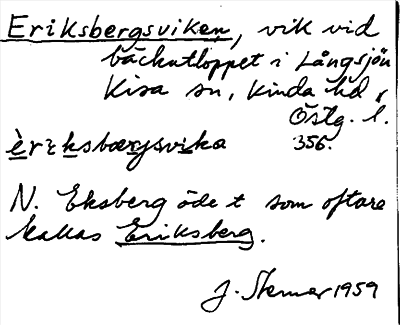 Eriksbergsviken, vik vid
bäckutloppet i Långsjön
Kisa sn, Kinda hd,
Östg. l.
èriksbærgsvika 356.
N. Eksberg öde t som oftare
kallas Eriksberg.
J. Stenar 1959